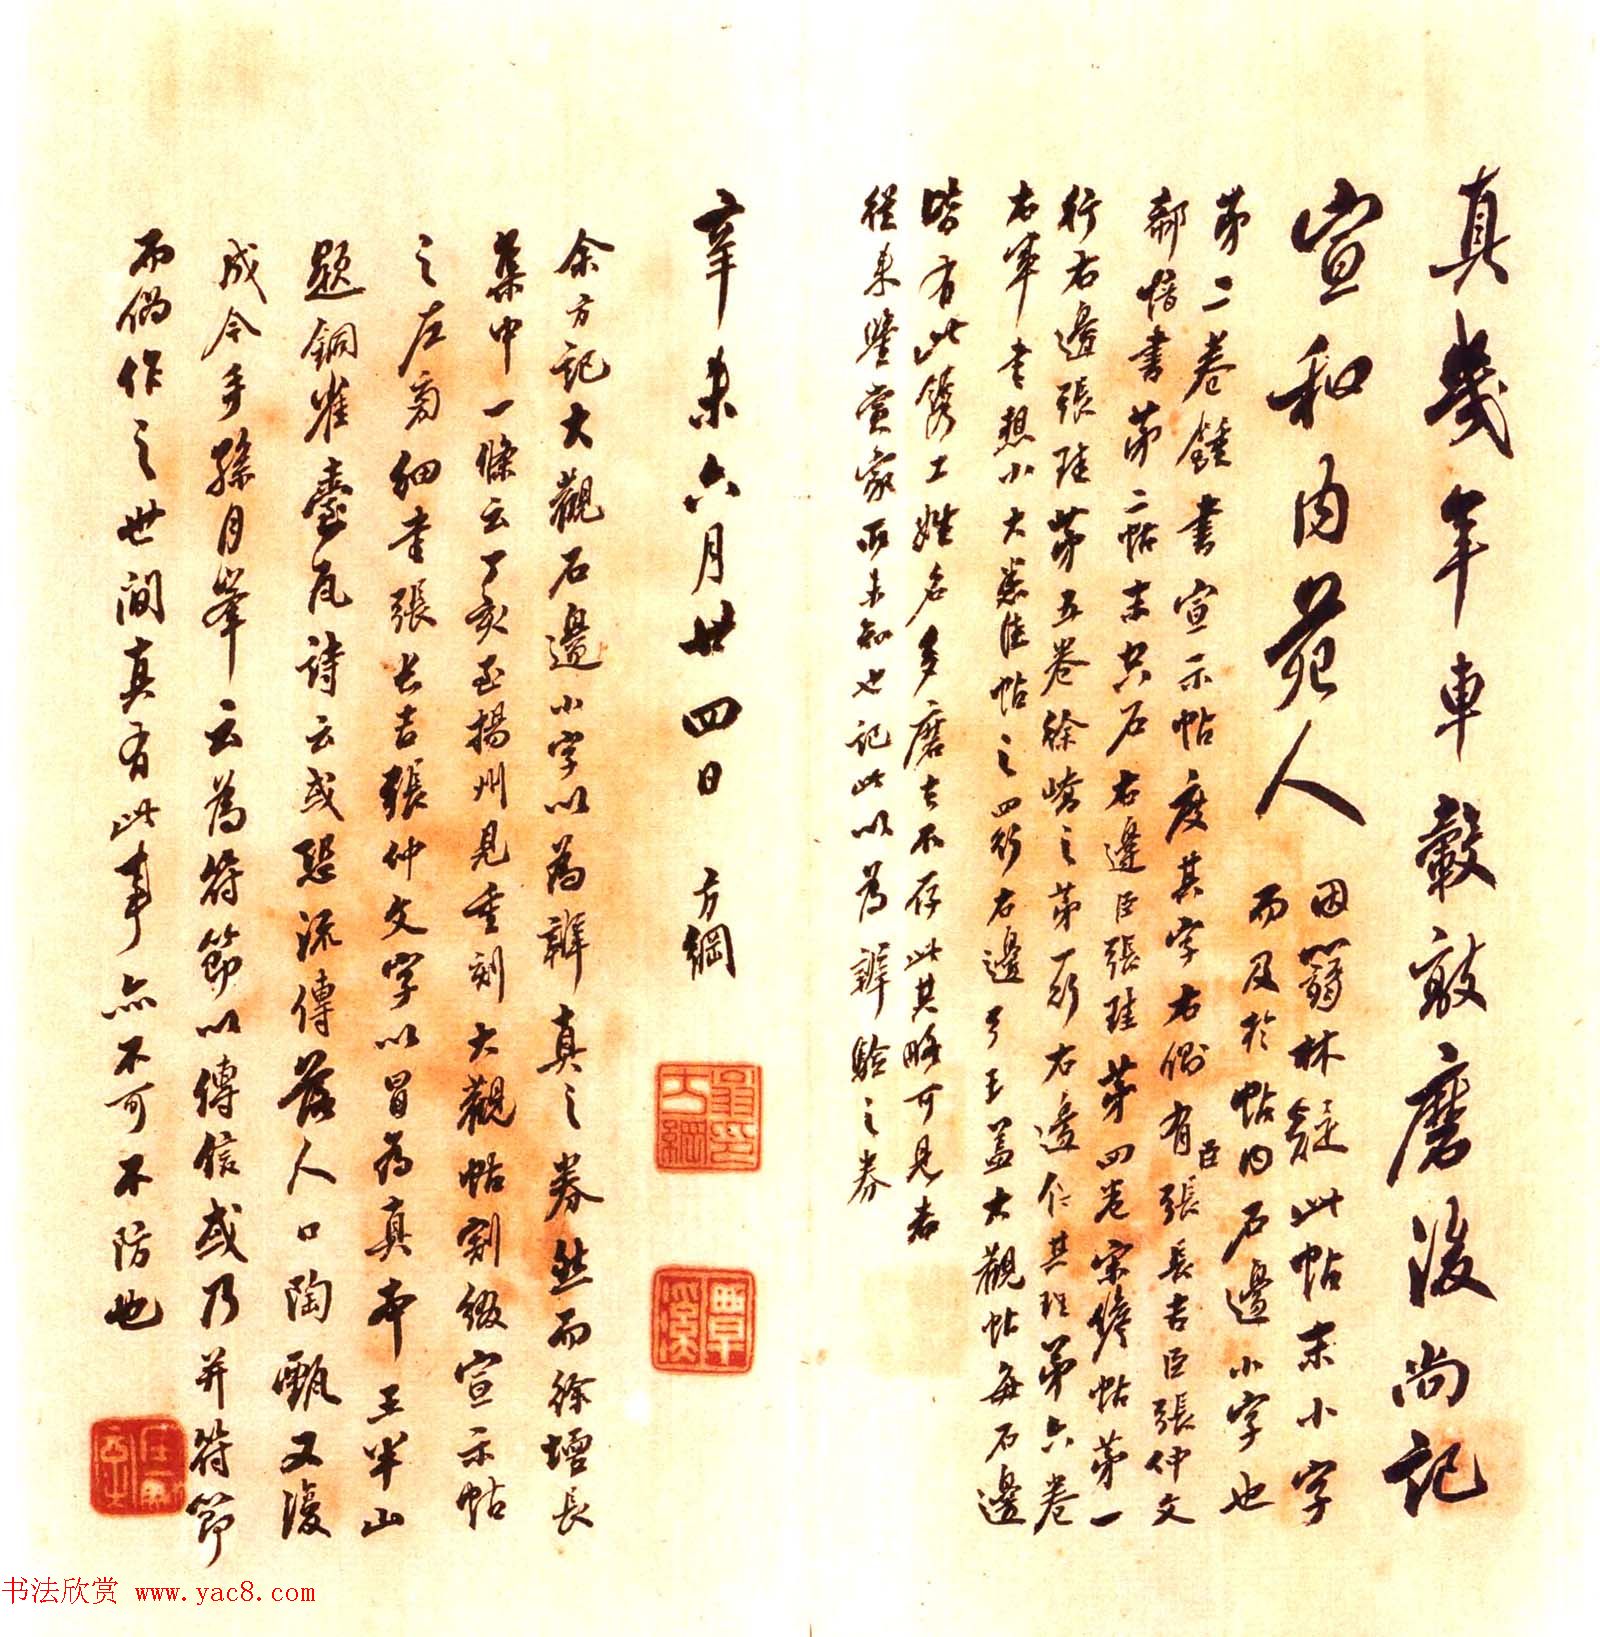 真幾年車轂敲磨後尚記
宣和內苑人
因蒻林疑此帖末小字
而及於帖內石邊小字也
第二卷鍾書宣示帖度其字右側有臣張長吉臣張仲文
郗愔書第二帖末只石右邊臣張珪第四卷宋儋帖第一
行右邊張珪第五卷徐嶠之第一行右邊仁其珪第六卷
右軍書想小大悉佳帖之四行右邊了王蓋大觀帖每石邊
皆有此鐫工姓名多磨去不存此其略可見者
從來鑒賞家所未知也記此以為辨驗之券
辛未六月廿四日 方綱
翁方綱印
覃溪
余方記大觀石邊小字以為辨真之券然而徐壇長
集中一條云丁亥至揚州見重刻大觀帖割綴宣示帖
之左旁細書張長吉張仲文字以冒為真本王半山
題銅雀臺瓦詩云或恐流傳落人口陶甄又復
成今手孫月峯云為符節以傳信或乃并符節
而偽作之世間真有此事亦不可不防也
书法欣赏 www.yac8.com